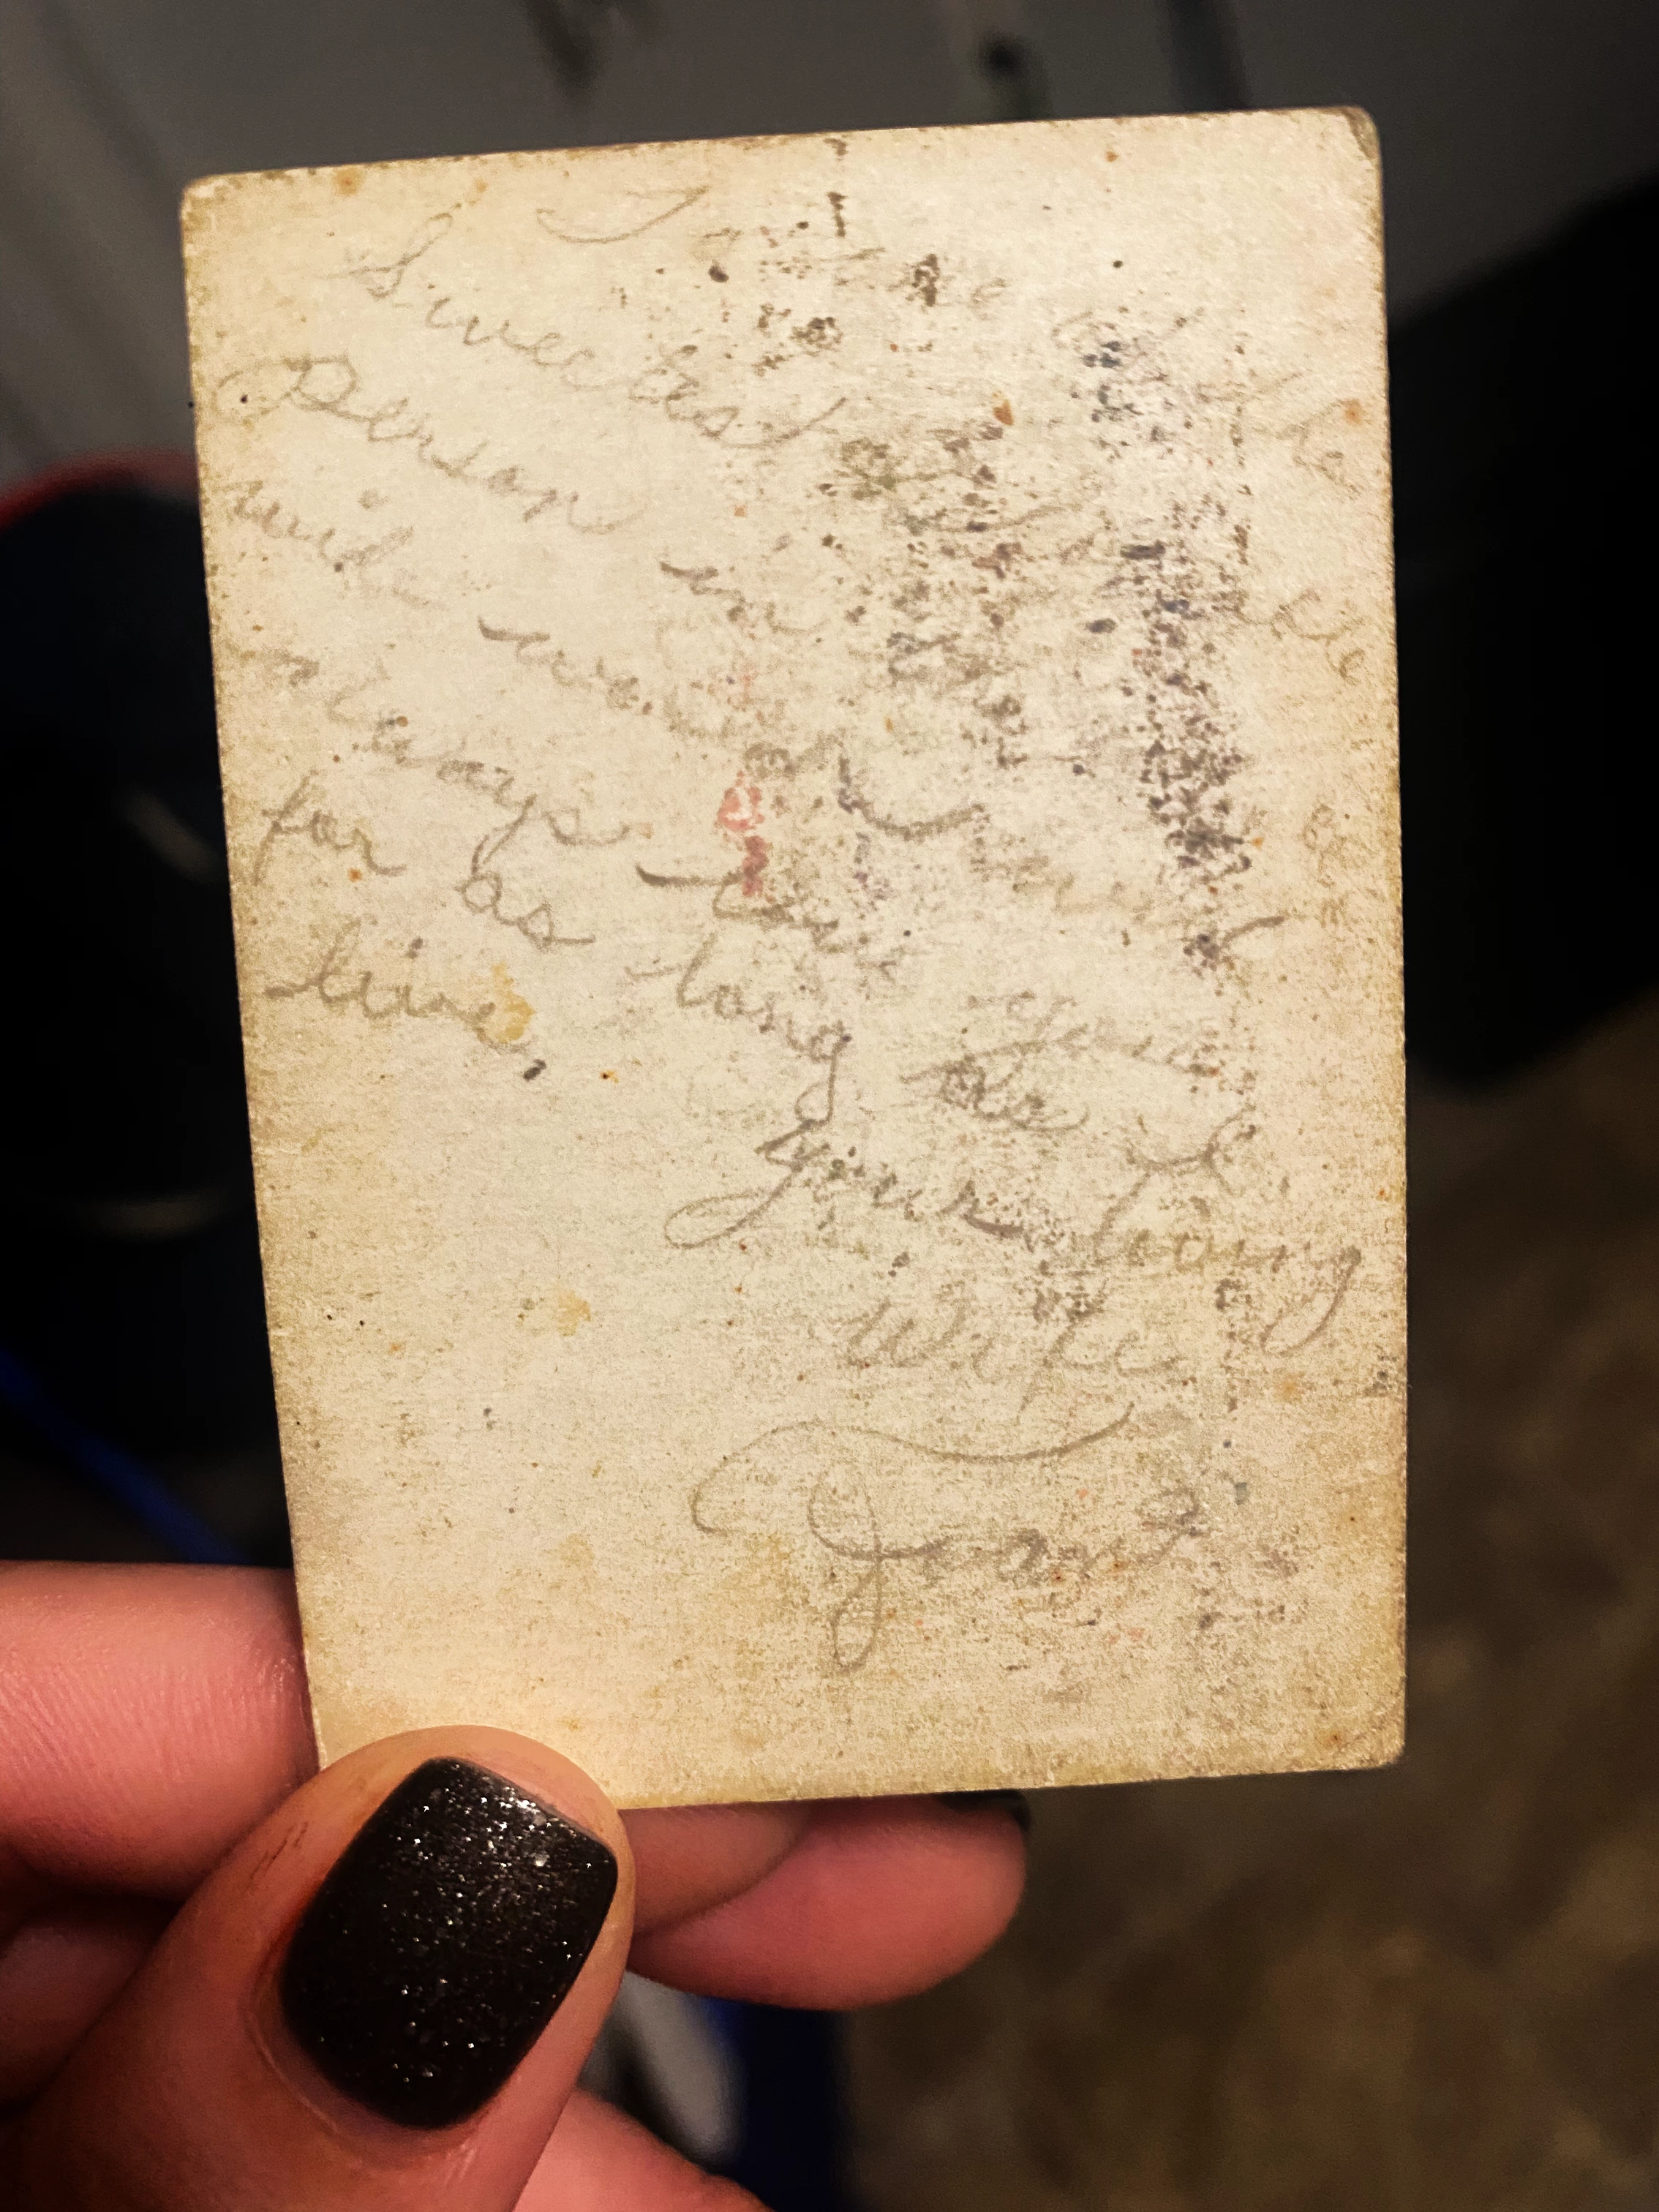 To
Sweetest
Person in the
wide world. I
always love you
for as long as I
live,
your loving
Wife
Joan